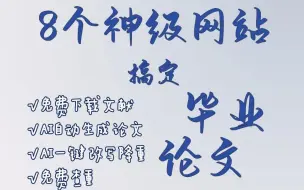 8个神级网站
搞定
毕业
论文
√免费下载文献
√AI自动生成论文
√AI一键改写降重
√免费查重